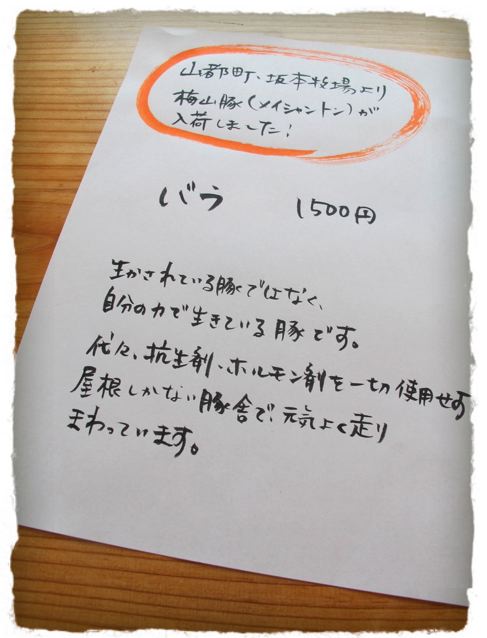 山都町、坂本牧場より
梅山豚(メイシャントン)が
入荷しました!
バラ 1500円
生かされている豚ではなく、
自分の力で生きている豚です。
代々、抗生剤、ホルモン剤を一切使用せず
屋根しかない豚舎で、元気よく走り
まわっています。